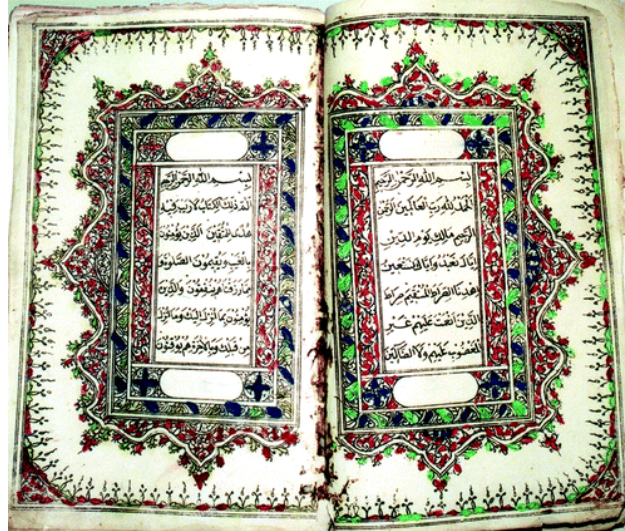 بِسْمِ اللَّهِ الرَّحْمٰنِ الرَّحِيمِ
الْحَمْدُ لِلَّهِ رَبِّ الْعَالَمِينَ الرَّحْمٰنِ
الرَّحِيمِ مَالِكِ يَوْمِ الدِّينِ
إِيَّاكَ نَعْبُدُ وَإِيَّاكَ نَسْتَعِينُ
اهْدِنَا الصِّرَاطَ الْمُسْتَقِيمَ صِرَاطَ
الَّذِينَ أَنْعَمْتَ عَلَيْهِمْ غَيْرِ
الْمَغْضُوبِ عَلَيْهِمْ وَلَا الضَّالِّينَ
بِسْمِ اللَّهِ الرَّحْمٰنِ الرَّحِيمِ
الم ذٰلِكَ الْكِتَابُ لَا رَيْبَ فِيهِ
هُدًى لِلْمُتَّقِينَ الَّذِينَ يُؤْمِنُونَ
بِالْغَيْبِ وَيُقِيمُونَ الصَّلٰوةَ وَ
مِمَّا رَزَقْنٰهُمْ يُنْفِقُونَ وَالَّذِينَ
يُؤْمِنُونَ بِمَا أُنْزِلَ إِلَيْكَ وَمَا أُنْزِلَ
مِنْ قَبْلِكَ وَبِالْآخِرَةِ هُمْ يُوقِنُونَ